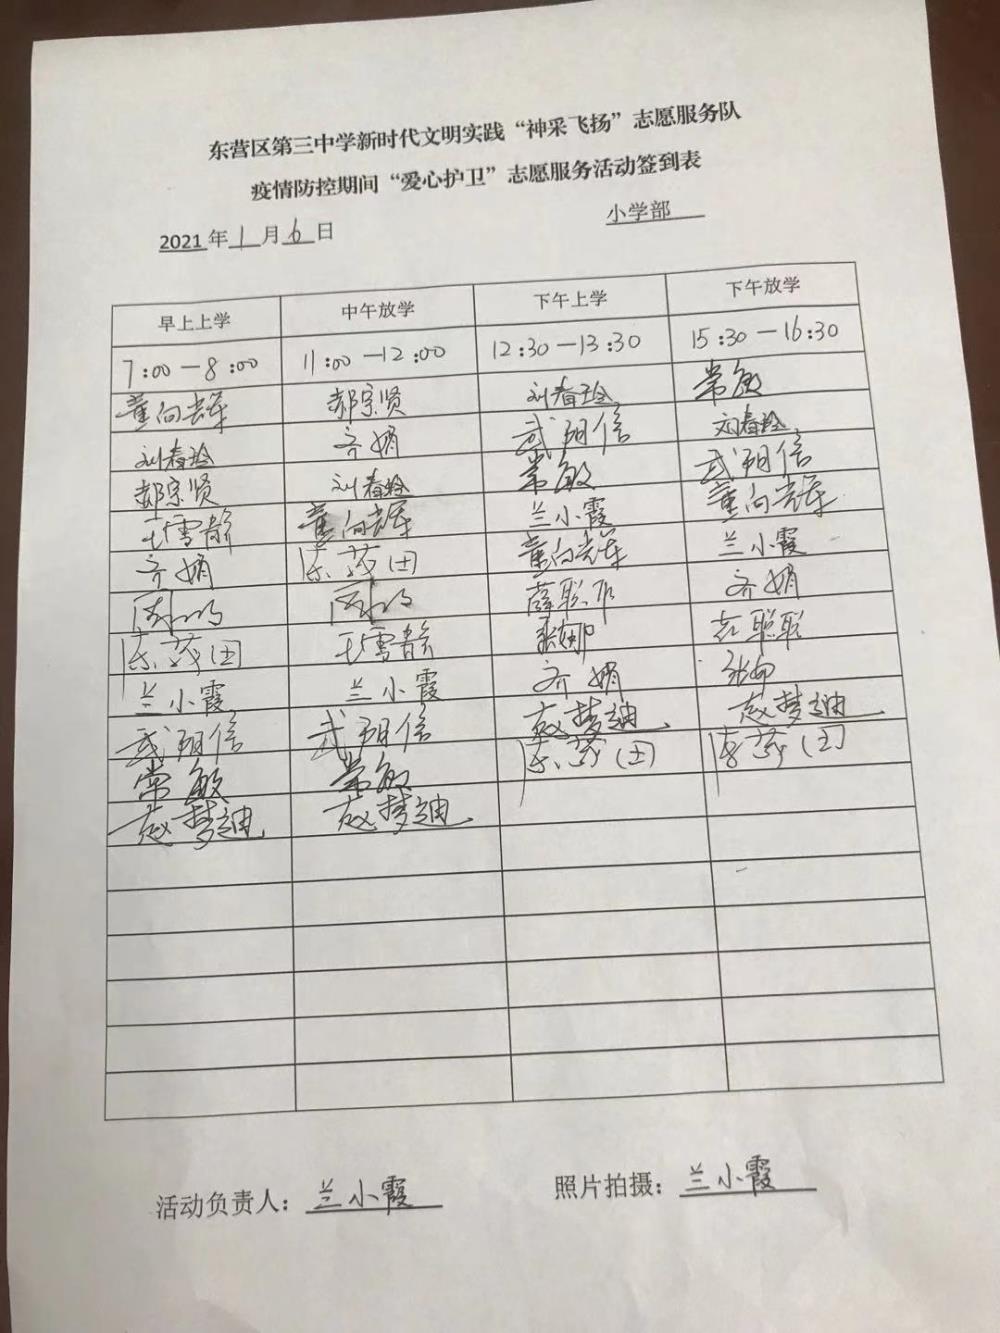 东营区第三中学新时代文明实践“神采飞扬”志愿服务队
疫情防控期间“爱心护卫”志愿服务活动签到表
2021年1月6日 小学部
早上上学 中午放学 下午上学 下午放学
7:00—8:00 11:00—12:00 12:30—13:30 15:30—16:30
董向荣 郝宗贤 刘春玲 常敏
刘春玲 齐娟 武翔信 刘春玲
郝宗贤 刘春玲 常敏 武翔信
王雪静 董向荣 兰小霞 董向荣
齐娟 陈茂田 董向荣 兰小霞
齐娟
陈茂田 王雪静 张娜
兰小霞 兰小霞 齐娟
武翔信 武翔信 赵梦迪 赵梦迪
常敏 常敏 陈茂田 陈茂田
赵梦迪 赵梦迪
活动负责人：兰小霞 照片拍摄：兰小霞